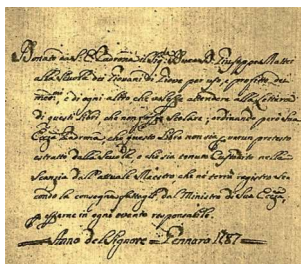 Donato da S. E. Padrona il Sig. Giuseppe Mattei
alla Scuola dei Giovani di Pieve per uso, e profitto dei
med.mi, e di ogni altro che volesse attendere alla Lettura
di questi Libri, che non fosse Scolare; ordinando però Sua
Ecc.za Padrona che questo Libro non sia per verun pretesto
estratto dalla Scuola, e che sia tenuto Custodito nella
Scanzia dall'attuale Maestro che ne terrà registro se=
condo la consegna fattegli dal Ministro di Sua Ecc.za,
per esserne in ogni evento responsabile.
Anno del Signore = Gennaro 1787